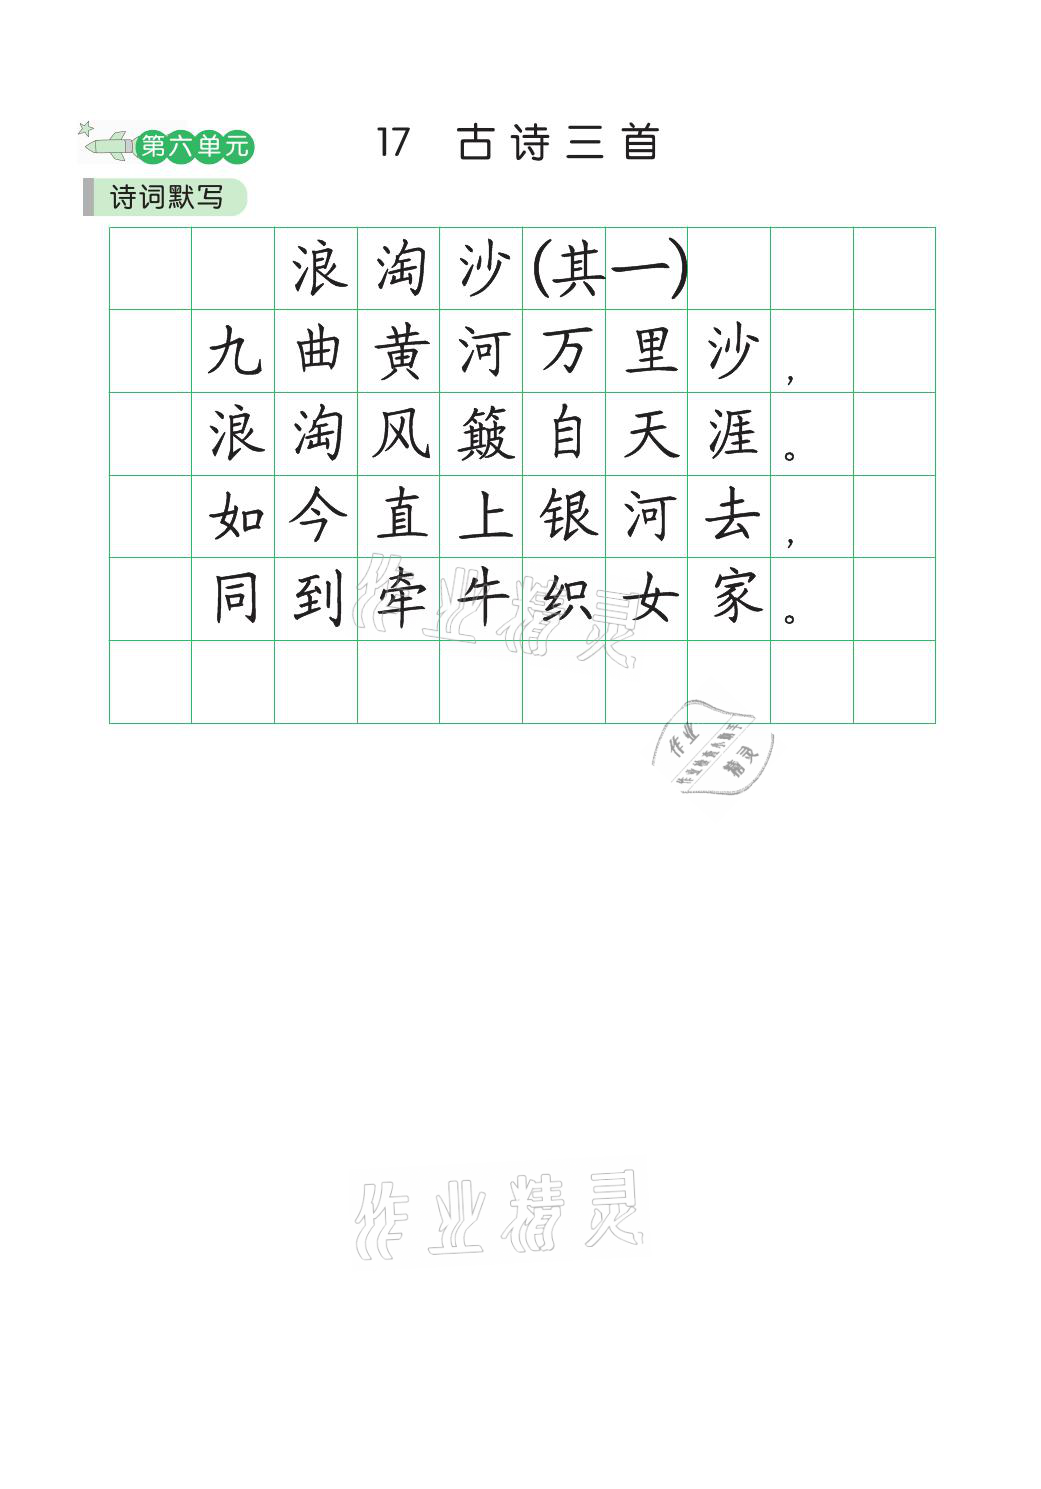 第六单元
17 古诗三首
诗词默写
浪淘沙(其一)
九曲黄河万里沙，
浪淘风簸自天涯。
如今直上银河去，
同到牵牛织女家。
作业精灵
作业
作业检查小助手
精灵
作业精灵